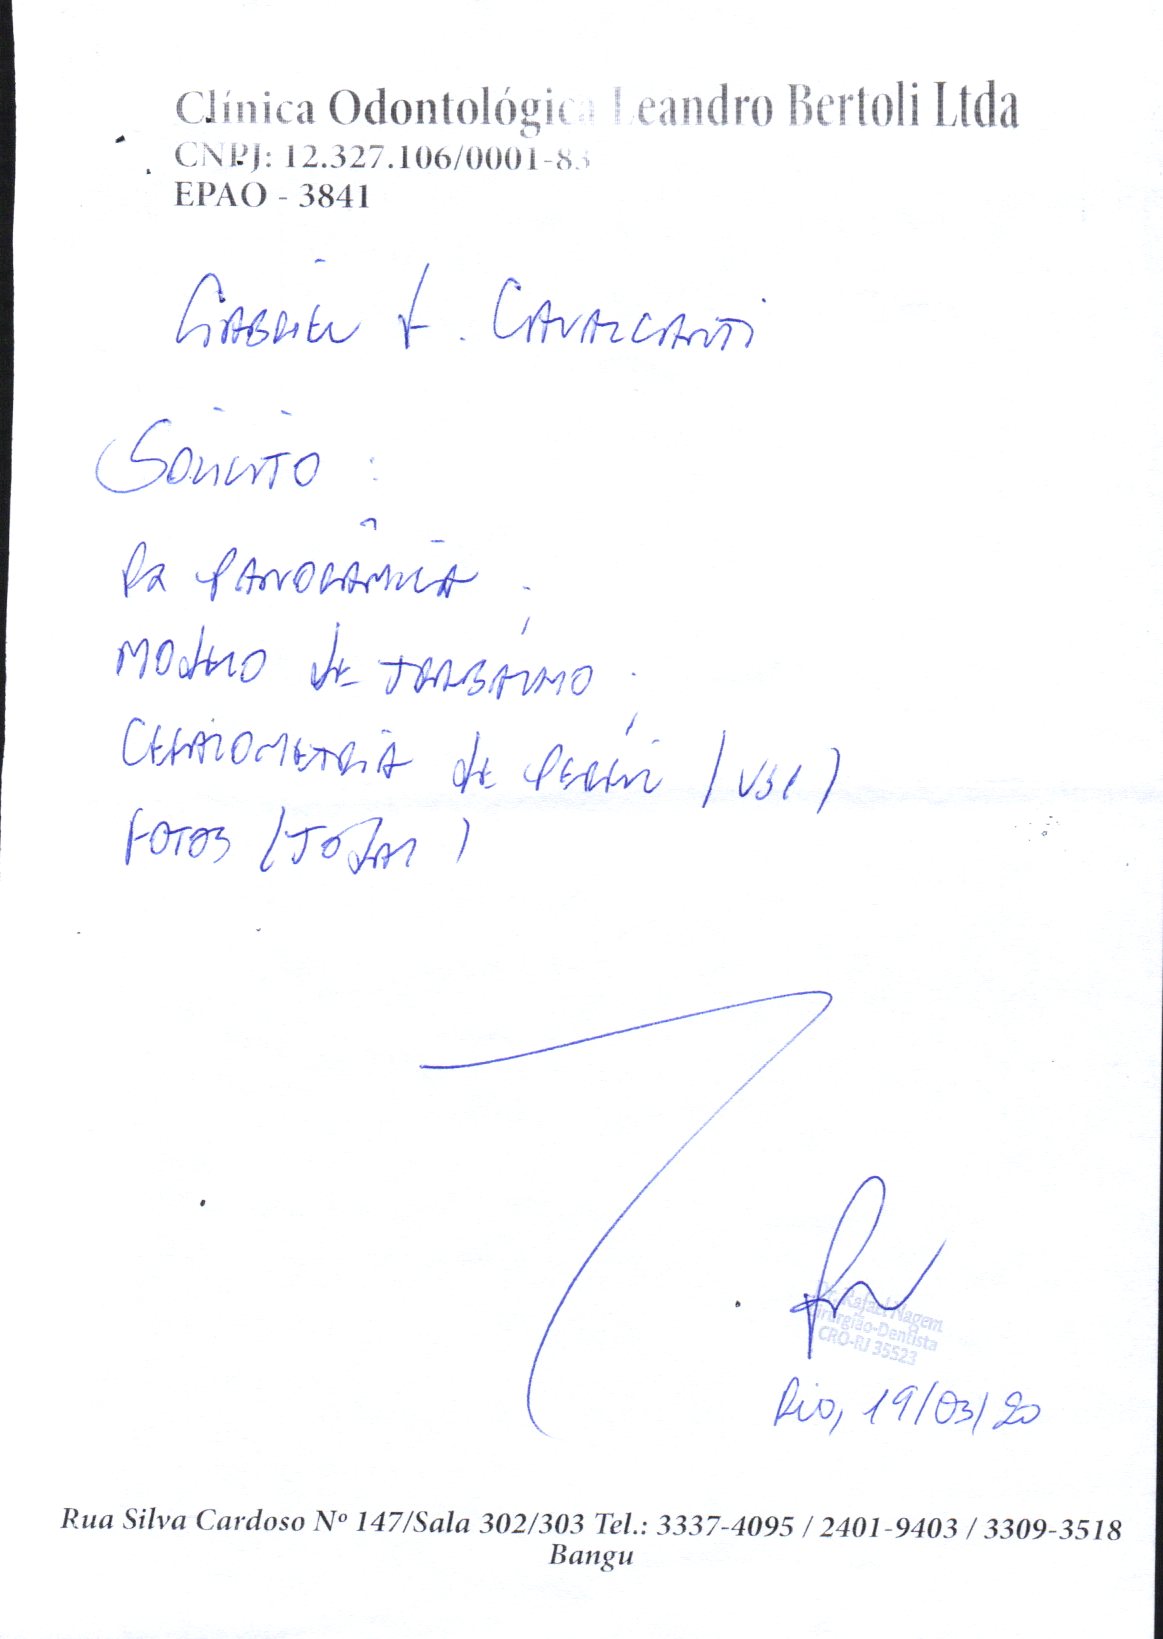 Clínica Odontológica Leandro Bertoli Ltda
CNPJ: 12.327.106/0001-83
EPAO - 3841
GABRIEL F. CAVALCANTI
SOLICITO :
RX PANORÂMICA ;
MODELO DE TRABALHO ;
CEFALOMETRIA DE PERFIL (USP)
FOTOS (TOTAL)
Dr. Rafael Nagem
Cirurgião-Dentista
CRO-RJ 35523
Rio, 19/03/20
Rua Silva Cardoso Nº 147/Sala 302/303 Tel.: 3337-4095 / 2401-9403 / 3309-3518
Bangu